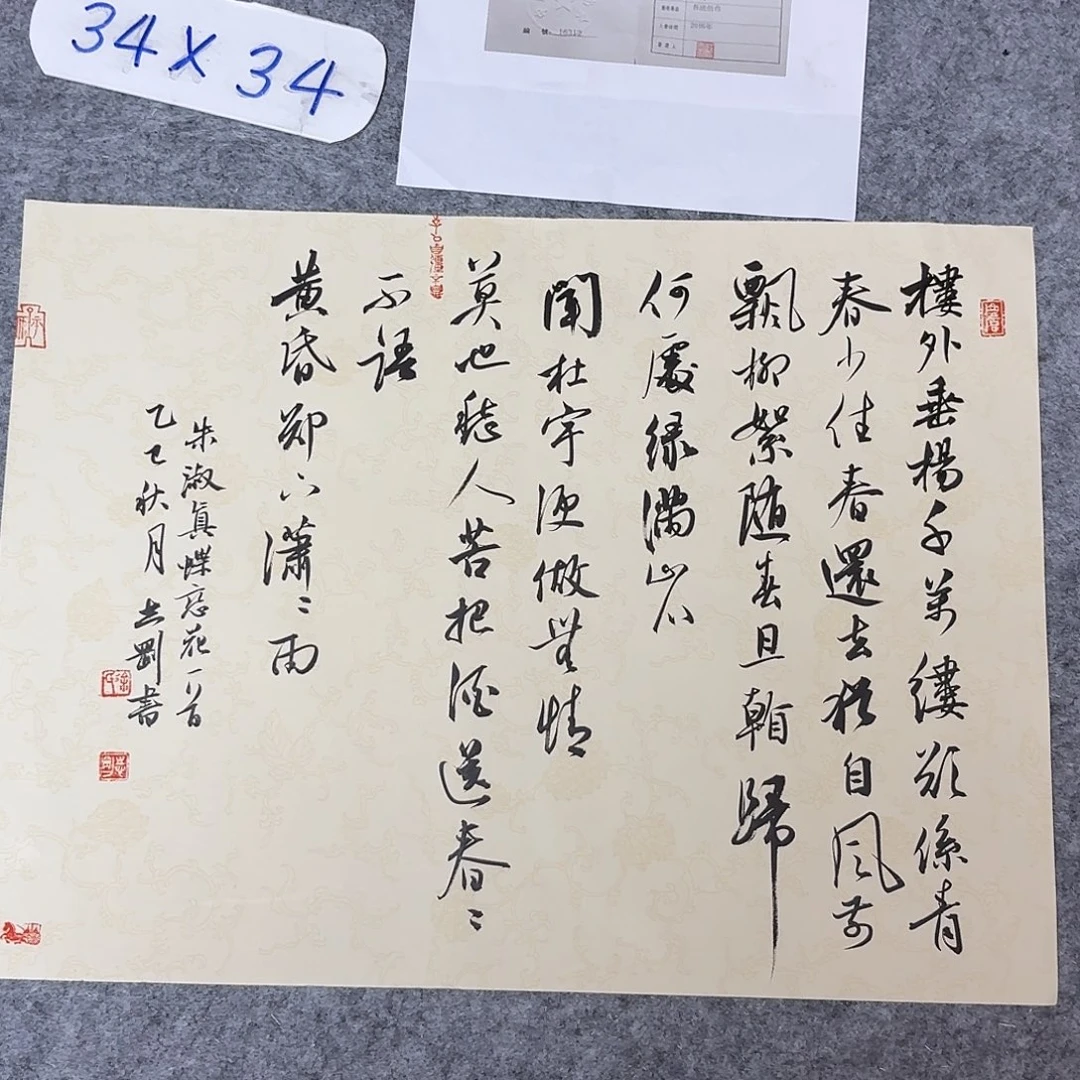 34 X 34
樓外垂楊千萬縷欲係青
春少住春還去猶自風前
飄柳絮随春且看歸
何處绿滿山川
聞杜宇便做無情
莫也愁人苦把酒送春〻
不語
黄昏卻下瀟〻雨
朱淑真蝶恋花一首
乙巳秋月志剛書